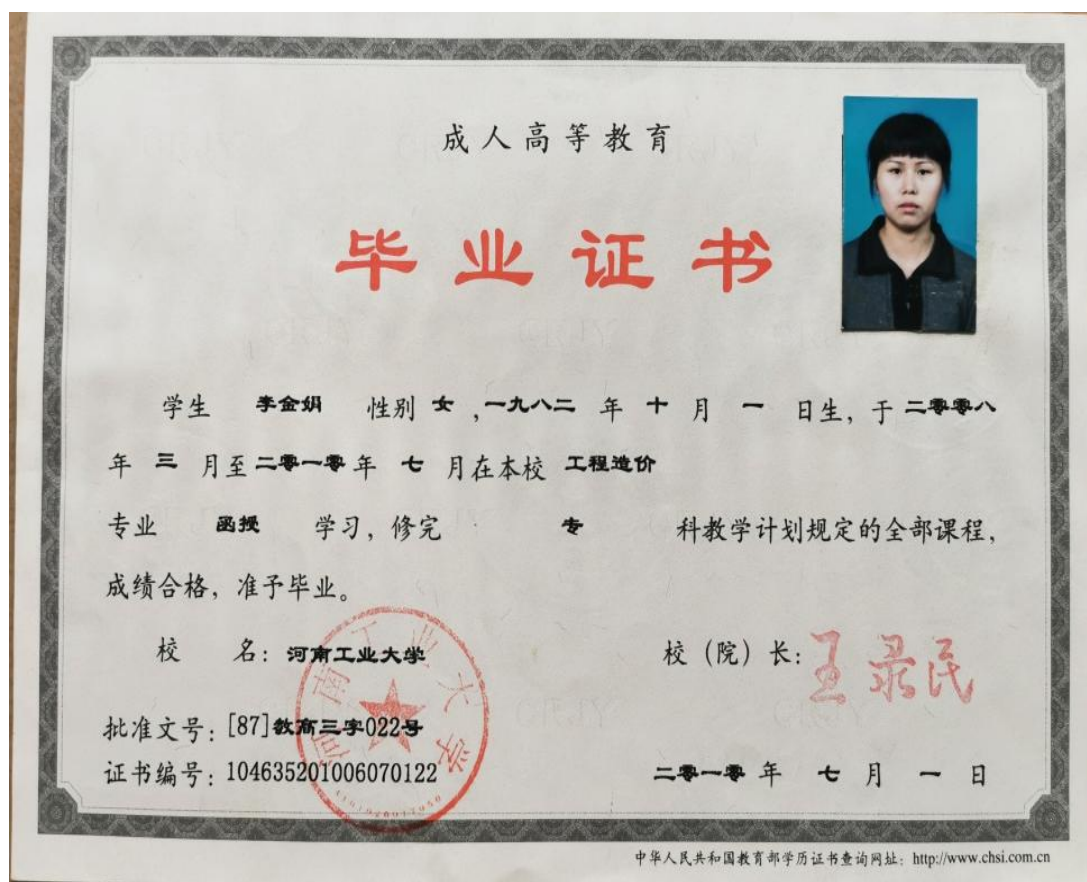 成人高等教育
毕业证书
学生 李金娟 性别 女 ,一九八二 年 十 月 一 日生, 于 二零零八
年 三 月至 二零一零 年 七 月在本校 工程造价
专业 函授 学习, 修完 专 科教学计划规定的全部课程,
成绩合格, 准予毕业。
校 名: 河南工业大学
校（院）长: 王录民
河南工业大学
批准文号: [87]教高三字022号
证书编号: 104635201006070122
二零一零 年 七 月 一 日
中华人民共和国教育部学历证书查询网址: http://www.chsi.com.cn